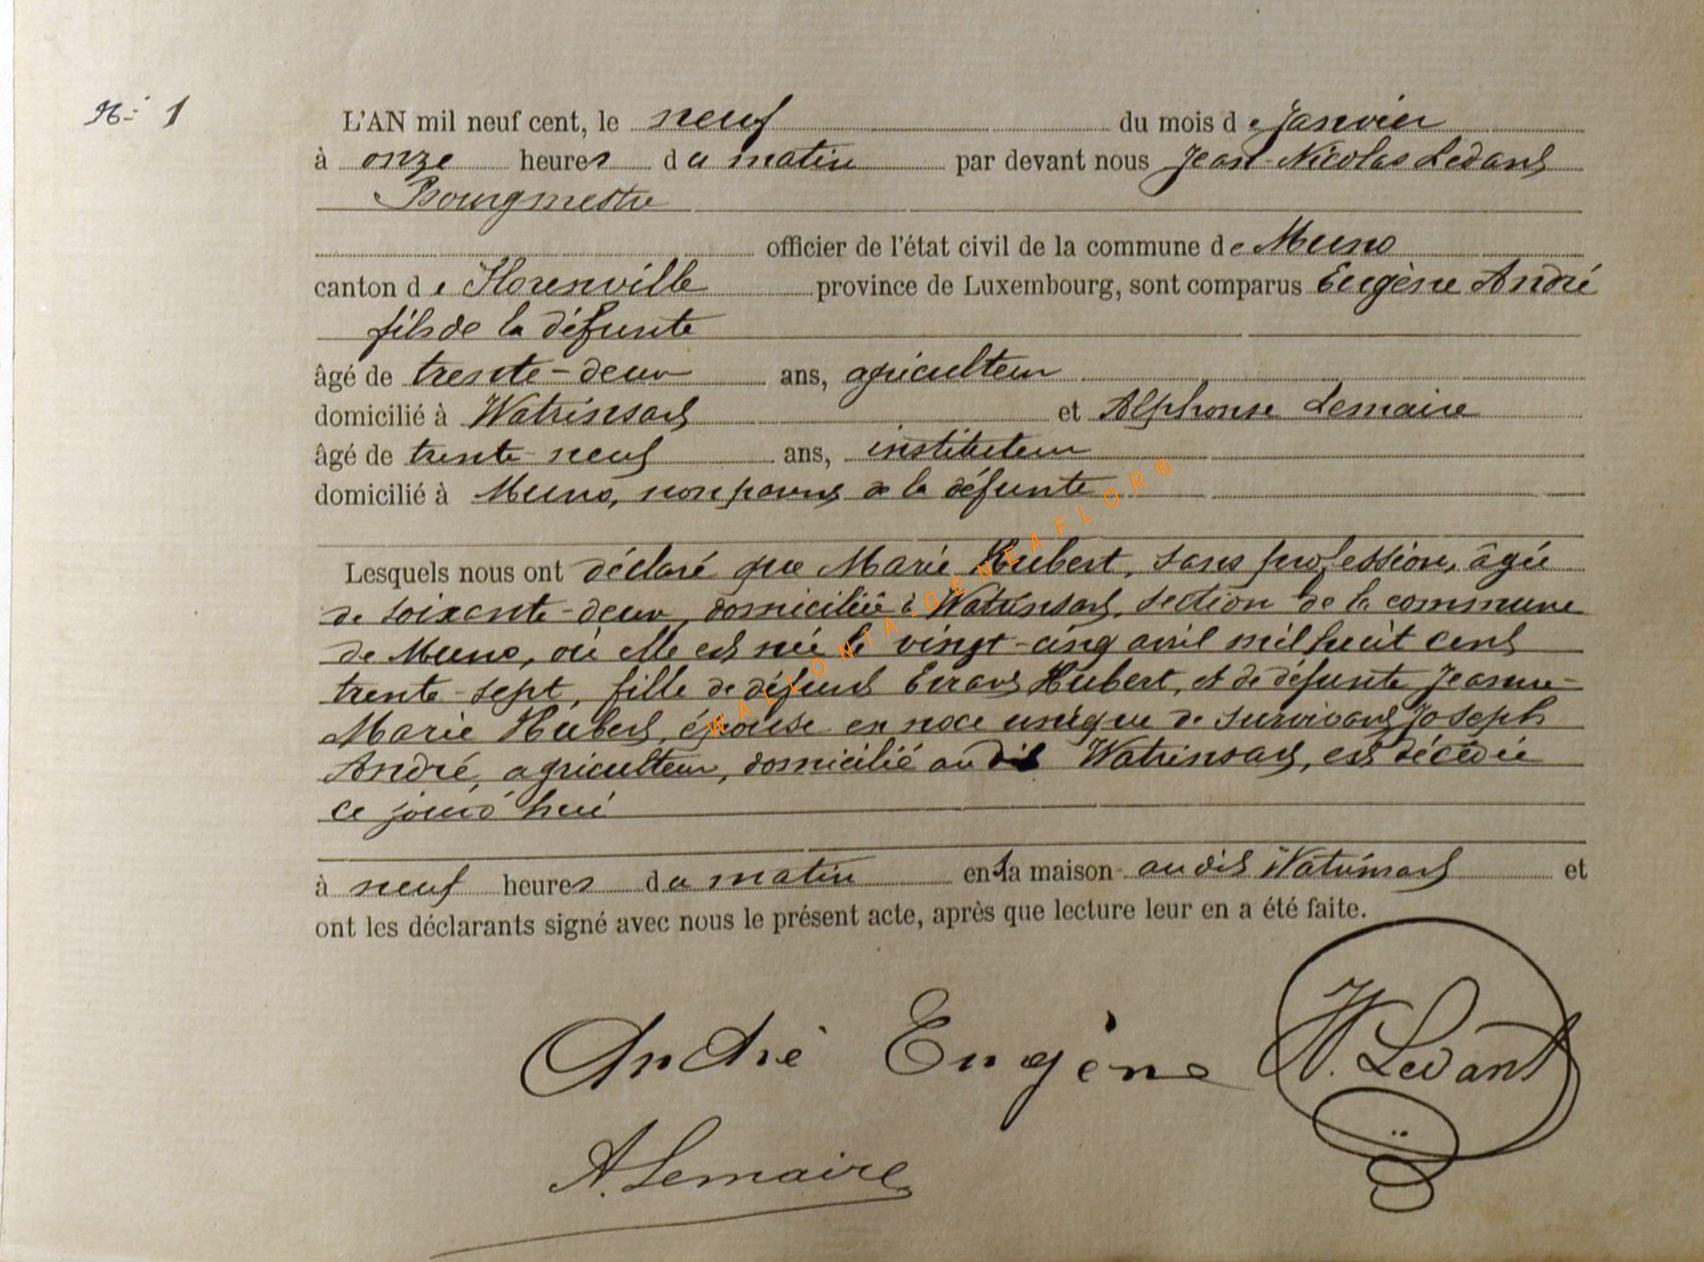 N° 1
L'AN mil neuf cent, le neuf du mois de Janvier
à onze heures du matin par devant nous Jean-Nicolas Ledant
Bourgmestre
officier de l'état civil de la commune de Muno
canton de Florenville province de Luxembourg, sont comparus Eugène André
fils de la défunte
âgé de trente-deux ans, agriculteur
domicilié à Watrinsart et Alphonse Lemaire
âgé de trente-neuf ans, instituteur
domicilié à Muno, non parent de la défunte
Lesquels nous ont déclaré que Marie Hubert, sans profession, âgée
de soixante-deux, domiciliée à Watrinsart, section de la commune
de Muno, où elle est née le vingt-cinq avril mil huit cent
trente-sept, fille de défunt Hubert, et de défunte Jeanne-
Marie Hubert, épouse en noce unique de survivant Joseph
André, agriculteur, domicilié au dit Watrinsart, est décédée
ce jourd'hui
à neuf heures du matin en la maison au dit Watrinsart et
ont les déclarants signé avec nous le présent acte, après que lecture leur en a été faite.
André Eugène N. Ledant
A. Lemaire
WALLONIA-GENEAFLOR®